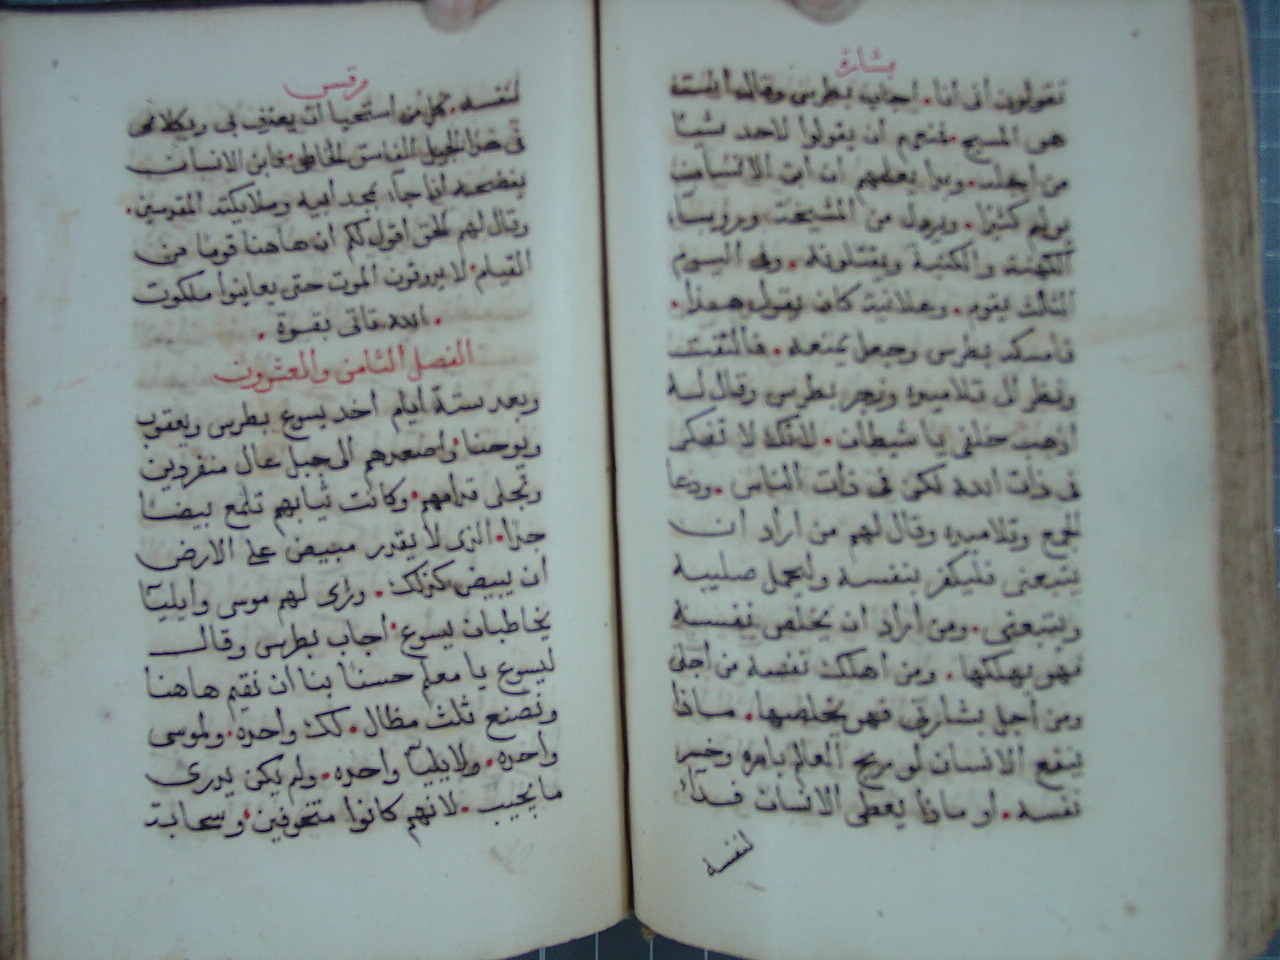 بشارة
تقولون انى انا. اجاب بطرس وقال انت
هو المسيح فمنعهم ان يقولوا لاحد شيئا
من اجله. وبدا يعلمهم ان ابن الانسان
يولم كثيرا. ويرذل من المشيخة وروسا
الكهنة والكتبة ويقتلونه. وفى اليوم
الثالث يقوم. وعلانية كان يقول هذا.
فامسكه بطرس وجعل يمنعه. فالتفت
ونظر الى تلاميذه وزجر بطرس وقال له
اذهب خلفى يا شيطان. لانك لا تفكر
فى ذات الله لكن فى ذات الناس. ودعا
الجمع وتلاميذه وقال لهم من اراد ان
يتبعنى فليكفر بنفسه وليحمل صليبه
ويتبعنى. ومن اراد ان يخلص نفسه
فهو يهلكها. ومن اهلك نفسه من اجلى
ومن اجل بشارتى فهو يخلصها. ماذا
ينفع الانسان لو ربح العالم باسره وخسر
نفسه. او ماذا يعطى الانسان فداء
لنفسه
مرقس
لنفسه. كل من استحيا ان يعترف بى وبكلامى
فى هذا الجيل الفاسق الخاطى. فابن الانسان
يفضحه اذا جاء بمجد ابيه وملايكته المقدسين.
وقال لهم الحق اقول لكم ان هاهنا قوما من
القيام لا يذوقون الموت حتى يعاينوا ملكوت
.الله قاتى بقوة.
الفصل الثامن والعشرون
وبعد ستة ايام اخد يسوع بطرس ويعقوب
ويوحنا واصعدهم الى جبل عال منفردين
وتجلى قدامهم. وكانت ثيابهم تلمع بيضا
جدا. الذى لا يقدر مبيض على الارض
ان يبيض كذلك. وراى لهم موسى وايليا
يخاطبان يسوع. اجاب بطرس وقال
ليسوع يا معلم حسنا بنا ان نقيم هاهنا
ونصنع ثلث مظال. لك واحده. ولموسى
واحده. ولايليا واحده. ولم يكن يدرى
ما يجيب. لانهم كانوا متخوفين. وسحابة